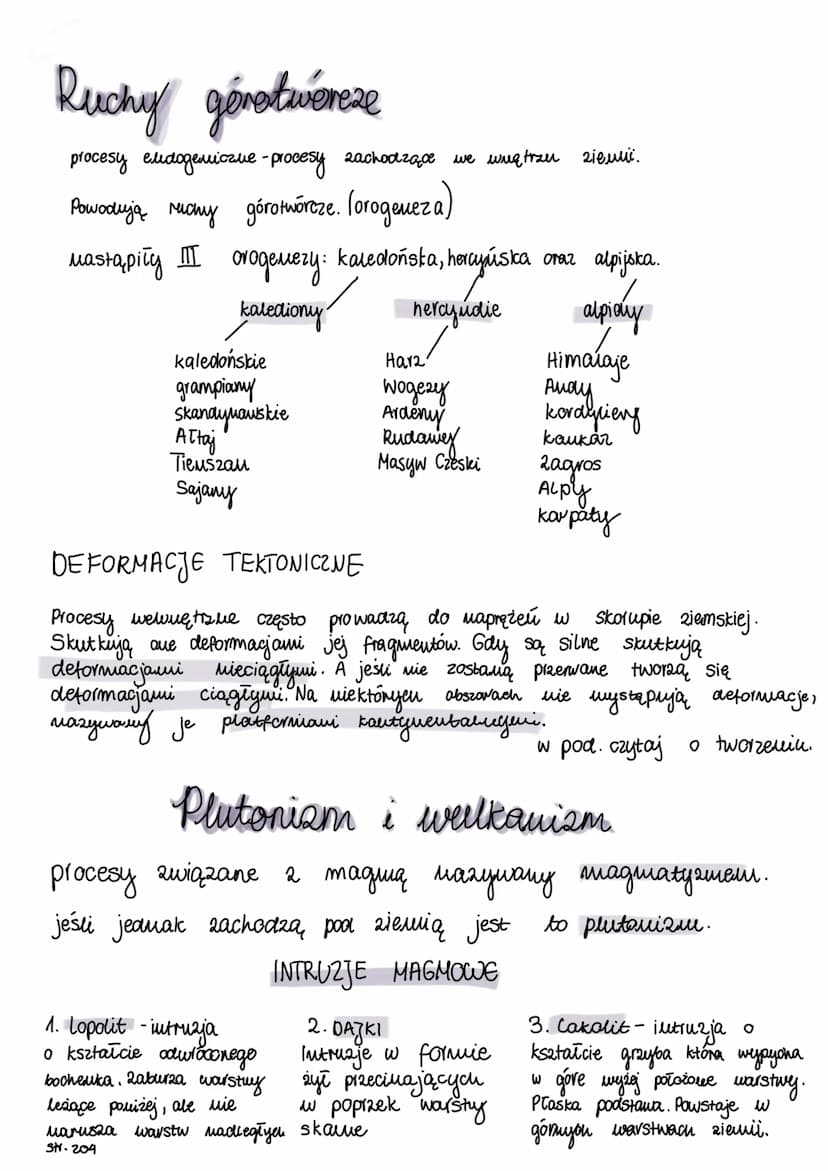 Ruchy górotwórcze
procesy endogeniczne - procesy zachodzące we wnątrzu ziemii.
Powodują ruchy górotwórcze. (orogeneza)
nastąpiły III orogenezy: kaledońska, hercyńska oraz alpijska.
kalediony hercynidie alpidy
kaledońskie
grampiany
skandynawskie
Ałtaj
Tienszan
Sajany
Harz
Wogezy
Ardeny
Rudawey
Masyw Czeski
Himalaje
Andy
kordyliery
kaukaz
zagros
Alpy
karpaty
DEFORMACJE TEKTONICZNE
Procesy wewnętrzne często prowadzą do naprężeń w skorupie ziemskiej.
Skutkują one deformacjami jej fragmentów. Gdy są silne skutkują
deformacjami nieciągłymi. A jeśli nie zostaną przerwane tworzą się
deformacjami ciągłymi. Na niektórych obszarach nie występują deformacje,
nazywamy je platformami kontynentalnymi.
w pod. czytaj o tworzeniu.
Plutonizm i wulkanizm
procesy związane z magmą nazywany magmatyzmem.
jeśli jednak zachodzą pod ziemią jest to plutonizm.
INTRUZJE MAGMOWE
1. lopolit - intruzja
o kształcie odwróconego
bochenka. Zaburza warstwy
leżące poniżej, ale nie
narusza warstw nadległych
str. 209
2. DAJKI
Intruzje w formie
żył przecinających
w poprzek warstwy
skalne
3. Lakolit - intruzja o
kształcie grzyba która wypycha
w górę wyżej położone warstwy.
Płaska podstawa. Powstaje w
górnych warstwach ziemii.